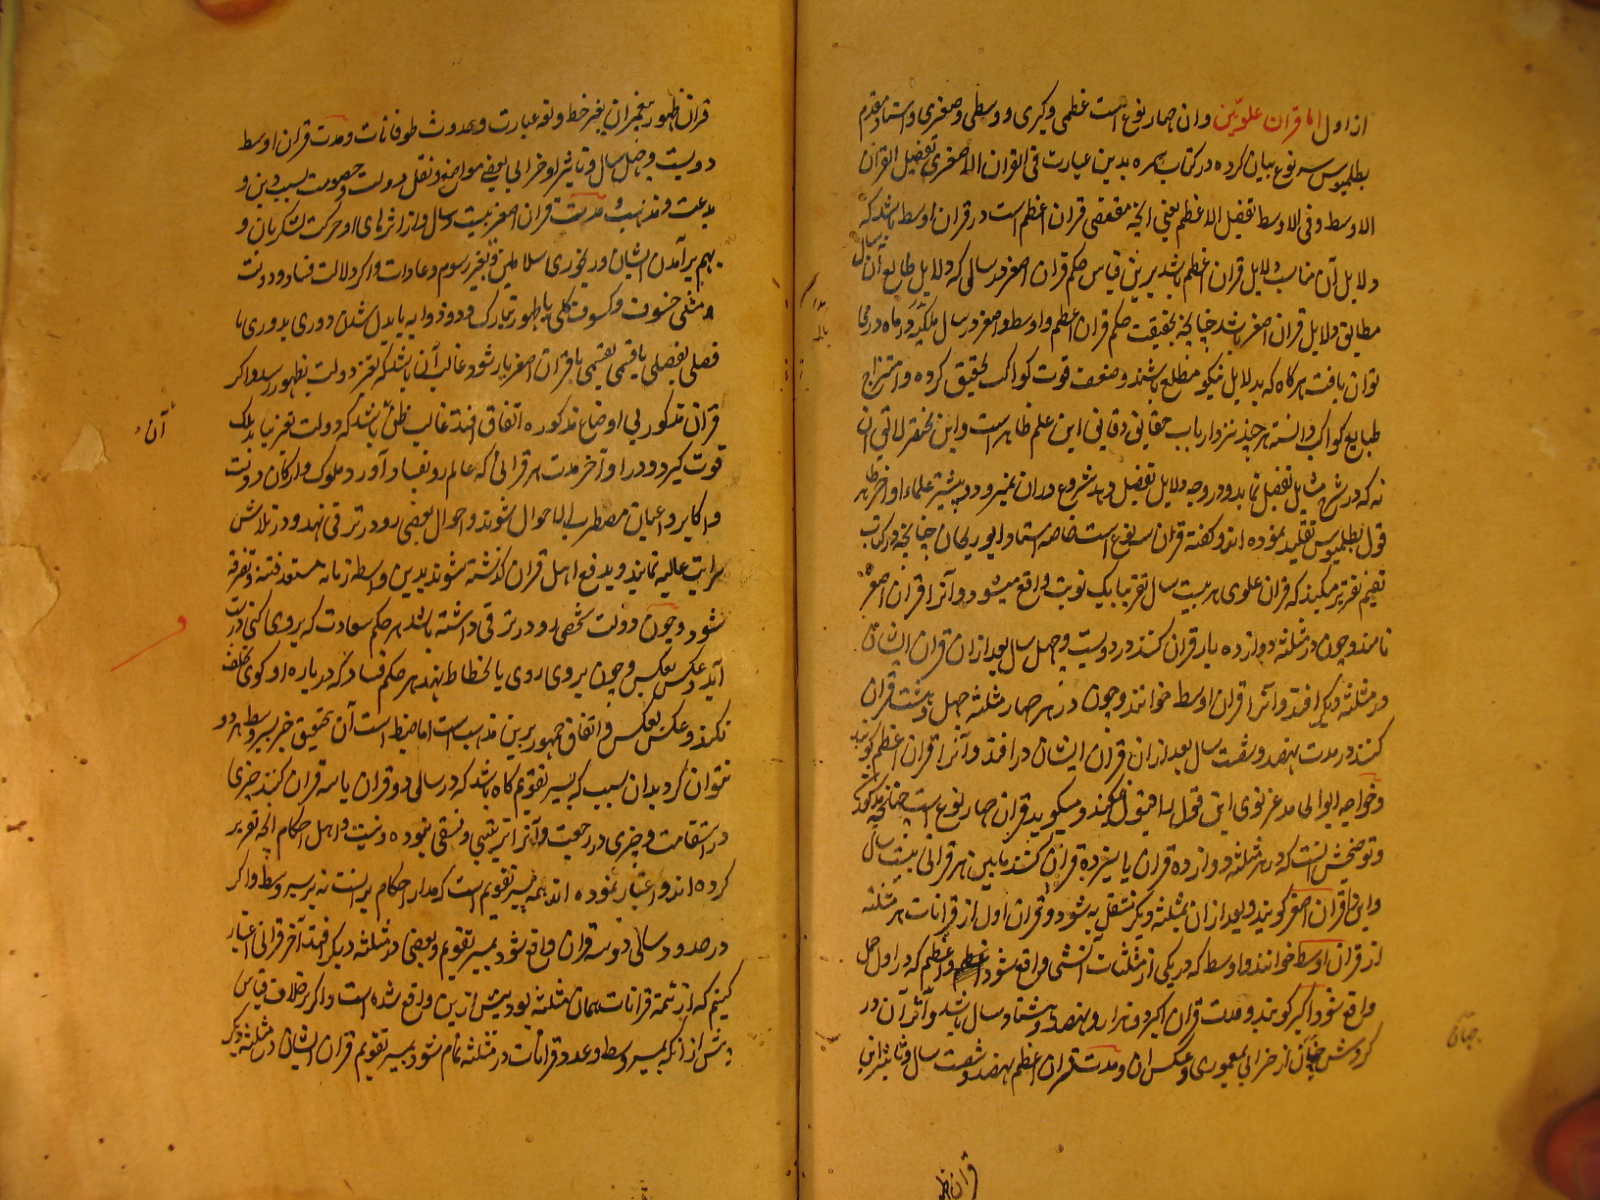 از اول اما قران علویین و ان چهار نوع است عظمی و کبری و وسطی و صغری و استاد مقدم
بطلمیوس سه نوع بیان کرده در کتاب ثمره بدین عبارت فی القران الاصغری تفضیل القران
الاوسط و فی الاوسط تفضیل الاعظم یعنی انچه مقتضی قران اعظم است در قران اوسط باشد که
دلایل آن مناسب دلایل قران اعظم باشد برین قیاس حکم قران اصغر در سالی که دلایل طالع آن سال
مطابق دلایل قران اصغر باشد چنانچه بحقیقت حکم قران اعظم و اوسط و اصغر در سال
توان یافت هرگاه که بدلایل نیکو مطلع باشند و ضعف قوت کواکب تحقیق کرده و امتزاج
طبایع کواکب دانسته هرچند نزد ارباب حقایق دقایق این علم ظاهر است و این مختصر لایق ان
نه که در شرح تفصیل نماید و در وجه دلایل تفصیل دهد شروع دران نمیرود و پیشتر علماء اواخر
قول بطلمیوس تقلید نموده اند و گفته قران سه نوع است خاصه استاد ابوریحان چنانچه در کتاب
تفهیم تقریر میکند که قران علوی هر بیست سال تقریبا یک نوبت واقع میشود و آنرا قران اصغر
نامند و چون در مثلثه دوازده بار قران کنند در دویست و چهل سال بعد ازان قران ایشان
در مثلثه دیگر افتد و آنرا قران اوسط خوانند و چون در هر چهار مثلثه چهل و هشت قران
کنند در مدت نهصد و شصت سال بعد ازان قران ایشان در افتد و آنرا قران اعظم گویند
و خواجه ابوالحامد غزنوی این قول را قبول نمیکند و میگوید قران چهار نوع است چنانچه مذکور شد
و توضیحش انست که در هر مثلثه دوازده قران یا سیزده قران کنند مابین هر قرانی بیست سال
و این را قران اصغر گویند و بعد ازان بمثلثه دیگر منتقل شود و قران اول از قرانات هر مثلثه
از قران اوسط خوانند و اوسط که در یکی از مثلثات آتشی واقع شود اعظم و اعظم که در اول حمل
واقع شود اکبر گویند و مدت قران اکبر دو هزار و هشتصد و هشتاد سال باشد و آثار آن در
گردش جهان از خرابی بمعموری و عکس ان و مدت قران اعظم نهصد و شصت سال و تاثیر این
جهان
قران ظهور پیغمبران بغیر خط و عبارت و حدوث طوفانات و مدت قران اوسط
دویست و چهل سال و تاثیر او خرابی بعضی مواضع و نقل دولت و خصومت بسبب دین و
بدعت و مذهب و مدت قران اصغر بیست سال و از اثرهای او حرکت لشکریان و
بهم برآمدن ایشان و سلاطین و تغیر رسوم و عادات و اگر دلالت فساد
و مثلی خسوف و کسوف کلی یا ظهور نیازک و ذوذوابه یا بدل شدن دوری بدوری یا
فصلی بفصلی یا قسمی بقسمی با قران اصغر یار شود غالب آن باشد که تغیر دولت بظهور رسد و اگر
قران مذکور بی اوضاع مذکوره اتفاق افتد غالب ظن باشد که دولت
آن
قوت گیرد و در اواخر مدت هر قرانی که عالم رو بفساد آورد و ملوک و ارکان دولت
و اکابر و اعیان مضطرب الاحوال شوند و احوال بعضی رو در ترقی نهد و در تلاش
مراتب عالیه نمایند و بدفع اهل قران گذشته شوند بدین واسطه زمانه مستعد فتنه و تفرقه
شود و چون دولت شخصی رو در ترقی داشته باشد هر حکم سعادت که بروی کنی درست
آید و عکس بعکس و چون بروی روی بانحطاط نهد هر حکم فساد که درباره او گوی تخلف
نکند و عکس بعکس و اتفاق جمهور برین مذهب است اما ضبط است آن بتحقیق جز بسیر وسط هر دو
نتوان کرد بدان سبب که بسیر تقویم گاه باشد که در سالی دو قران یا سه قران کنند چیزی
در استقامت و چیزی در رجعت و آنرا ترتیبی و نسقی نبوده و نیست و اهل احکام انچه تقریر
کرده اند و اعتبار نموده اند بسیر تقویم است که مدار احکام برانست نه برسیر وسط و اگر
در حدود سالی دو سه قران واقع شود بسیر تقویم و بعضی در مثلثه دیگر افتد آخر قرانی اعتبار
کنیم که از تتمه قرانات همان مثلثه بود پیش ازین واقع شده است و اگر برخلاف قیاس
پیش از انکه بسیر وسط و عدد قرانات در مثلثه تمام شود بسیر تقویم قران ایشان در مثلثه دیگر